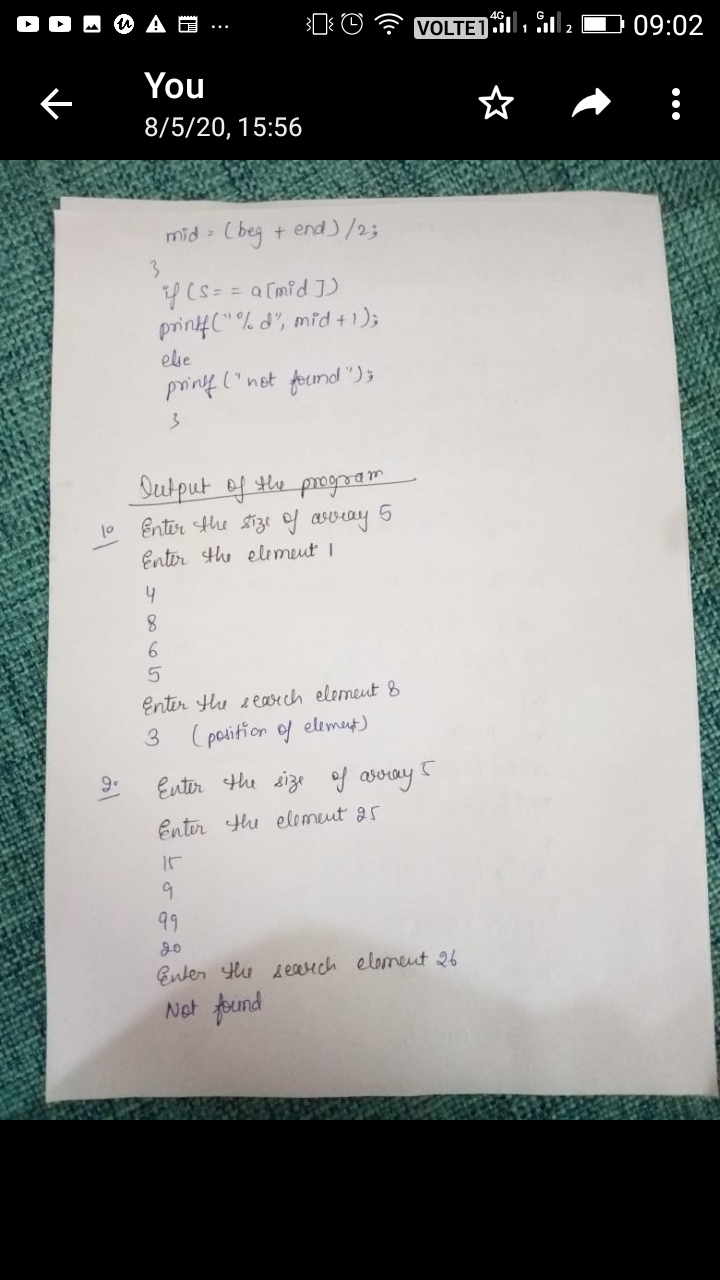 VOLTE1 4G 1 G 2 09:02
You
8/5/20, 15:56
mid = (beg + end) /2;
}
if (s = = a[mid])
printf("%d", mid + 1);
else
printf ("not found");
}
Output of the program
1. Enter the size of array 5
Enter the element 1
4
8
6
5
Enter the search element 8
3 (position of element)
2. Enter the size of array 5
Enter the element 25
15
9
99
20
Enter the search element 26
Not found